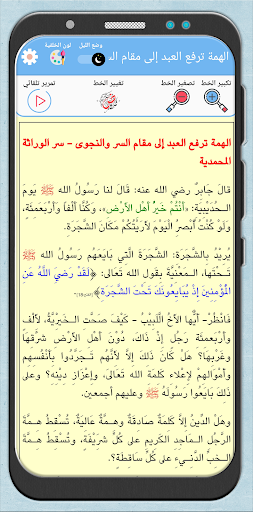 الهمة ترفع العبد إلى مقام الـ
وضع الليل
لون الخلفية
تكبير الخط
تصغير الخط
تغيير الخط
تمرير تلقائي
الهمة ترفع العبد إلى مقام السر والنجوى – سر الوراثة
المحمدية
قَالَ جَابِرٌ رضي الله عنه: قَالَ لنا رَسُولُ الله ﷺ يَومَ
الحُدَيْبِيَةِ: «أَنْتُمْ خَيْرُ أَهْلِ الأَرْضِ»، وَكُنَّا أَلْفاً وَأَرْبَعمِئَةٍ،
وَلَوْ كُنْتُ أُبْصِرُ الْيَوْمَ لَأَرَيْتُكُمْ مَكَانَ الشَّجَرَةِ.
يُرِيدُ بِالشَّجَرَةِ: الشَّجَرَةَ الَّتي بَايَعَهُم رَسُولُ الله ﷺ
تَحْتَهَا، المَعْنِيَّةَ بِقَولِ الله تَعَالَى: ﴿لَقَدْ رَضِيَ اللَّهُ عَنِ
الْمُؤْمِنِينَ إِذْ يُبَايِعُونَكَ تَحْتَ الشَّجَرَةِ﴾
فَانْظُرْ- أَيُّهَا الأَخُ اللَّبِيبُ – كَيْفَ صَحَّت الخَيْرِيَّةُ، لأَلف
وأَربعمئة رَجُل إِذْ ذاكَ، دُونَ أَهْل الأَرْض شَرْقِهَا
وَغَرْبِهَا؟ هَلْ كَانَ ذلِكَ إِلاَّ لأَنَّهُمْ تَجَرَّدُوا بأَنْفُسِهِم
وأَمْوَالِهِمْ لإِعْلاءِ كَلمَة الله تَعَالَى، وإِعْزَازِ دِينِهِ؟ وعلى
ذلكَ بَايَعُوا رَسُولَهُ ﷺ وعليهم أجمعين.
وَهَلِ الدِّينُ إِلاَّ كَلِمَةٌ صَادقَةٌ وهمَّةٌ عَاليَةٌ، تُسْقِطُ همَّةُ
الرَّجُل المَاجد الكريم على كُلِّ شَريفَةٍ، وتُسْقِطُ همَّةَ
الخبِّ الدَّنيء على كُلِّ سَاقطَةٍ؟.